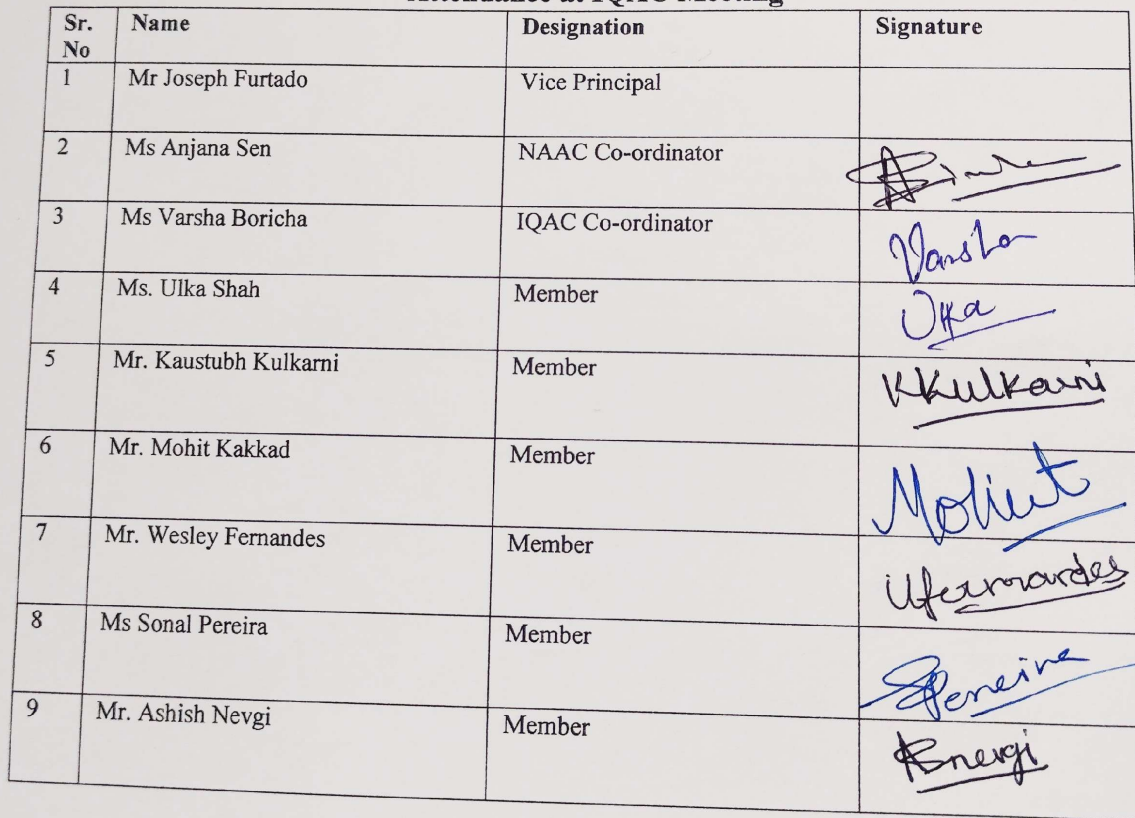 Attendance at IQAC Meeting
Sr. No Name Designation Signature
1 Mr Joseph Furtado Vice Principal
2 Ms Anjana Sen NAAC Co-ordinator
3 Ms Varsha Boricha IQAC Co-ordinator Varsha
4 Ms. Ulka Shah Member Ulka
5 Mr. Kaustubh Kulkarni Member KKulkarni
6 Mr. Mohit Kakkad Member Mohit
7 Mr. Wesley Fernandes Member Wfernandes
8 Ms Sonal Pereira Member SPereira
9 Mr. Ashish Nevgi Member Asnevgi